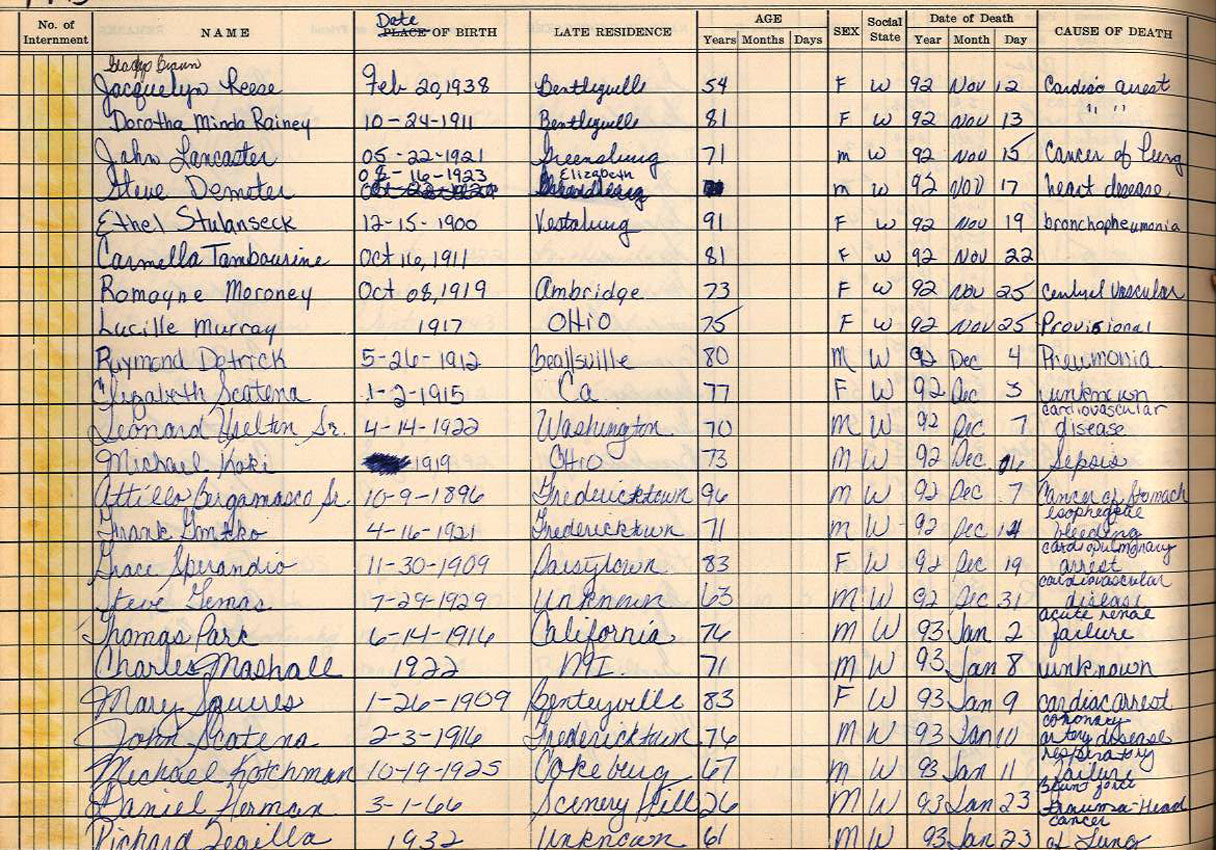 No. of Internment NAME Date PLACE OF BIRTH LATE RESIDENCE AGE Years Months Days SEX Social State Date of Death Year Month Day CAUSE OF DEATH
Gladys Braun
Jacquelyn Reese Feb 20, 1938 Bentleyville 54 F W 92 Nov 12 Cardiac arrest
Dorotha Minda Rainey 10-24-1911 Bentleyville 81 F W 92 Nov 13 " "
John Lancaster 05-22-1921 Greensburg 71 m W 92 Nov 15 Cancer of lung
Steve Demeter 08-16-1923 Elizabeth m w 92 Nov 17 heart disease
Ethel Stulanseck 12-15-1900 Vestaburg 91 F w 92 Nov 19 bronchopheumonia
Carmella Tambourine Oct 16, 1911 81 F w 92 Nov 22
Romayne Moroney Oct 08, 1919 Ambridge 73 F W 92 Nov 25 Vascular
Lucille Murray 1917 OHio 75 F W 92 Nov 25 Provisional
Raymond Detrick 5-26-1912 Beallsville 80 M W 92 Dec 4 Pneumonia
Elizabeth Scatena 1-2-1915 Ca 77 F W 92 Dec 3 unknown
Leonard Sr. 4-14-1922 Washington 70 M W 92 Dec 7 cardiovascular disease
Michael Koki 1919 OHio 73 M W 92 Dec 06 Sepsis
Attillo Bergamasco Sr. 10-9-1896 Fredericktown 96 m W 92 Dec 7 Cancer of Stomach
Frank 4-16-1921 Fredericktown 71 m W 92 Dec 14 esophegeal bleeding
Grace Sperandio 11-30-1909 Daisytown 83 F W 92 Dec 19 cardiopulmonary arrest
Steve Gemas 7-29-1929 Unknown 63 M W 92 Dec 31 cardiovascular disease
Thomas Park 6-14-1916 California 76 M W 93 Jan 2 acute renal failure
Charles Mashall 1922 71 M W 93 Jan 8 unknown
Mary Squires 1-26-1909 Benteyville 83 F W 93 Jan 9 cardiac arrest
John Scatena 2-3-1916 Fredericktown 76 M W 93 Jan 10 coronary artery disease
Michael Kotchman 10-19-1925 Cokeburg 67 m W 93 Jan 11 respiratory failure
Daniel Herman 3-1-66 Scenery Hill 26 M W 93 Jan 23 Blunt force trauma-Head
Richard Zegilla 1932 Unknown 61 M W 93 Jan 23 cancer of Lung